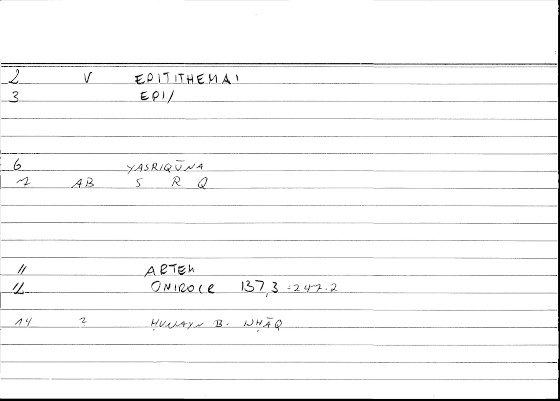 2 V EPITITHEMAI
3 EPI/
6 YASRIQŪNA
1 AB S R Q
11 ARTEM
12 ONIROCR 137,3 = 247.2
14 2 ḤUNAYN B. ISḤĀQ